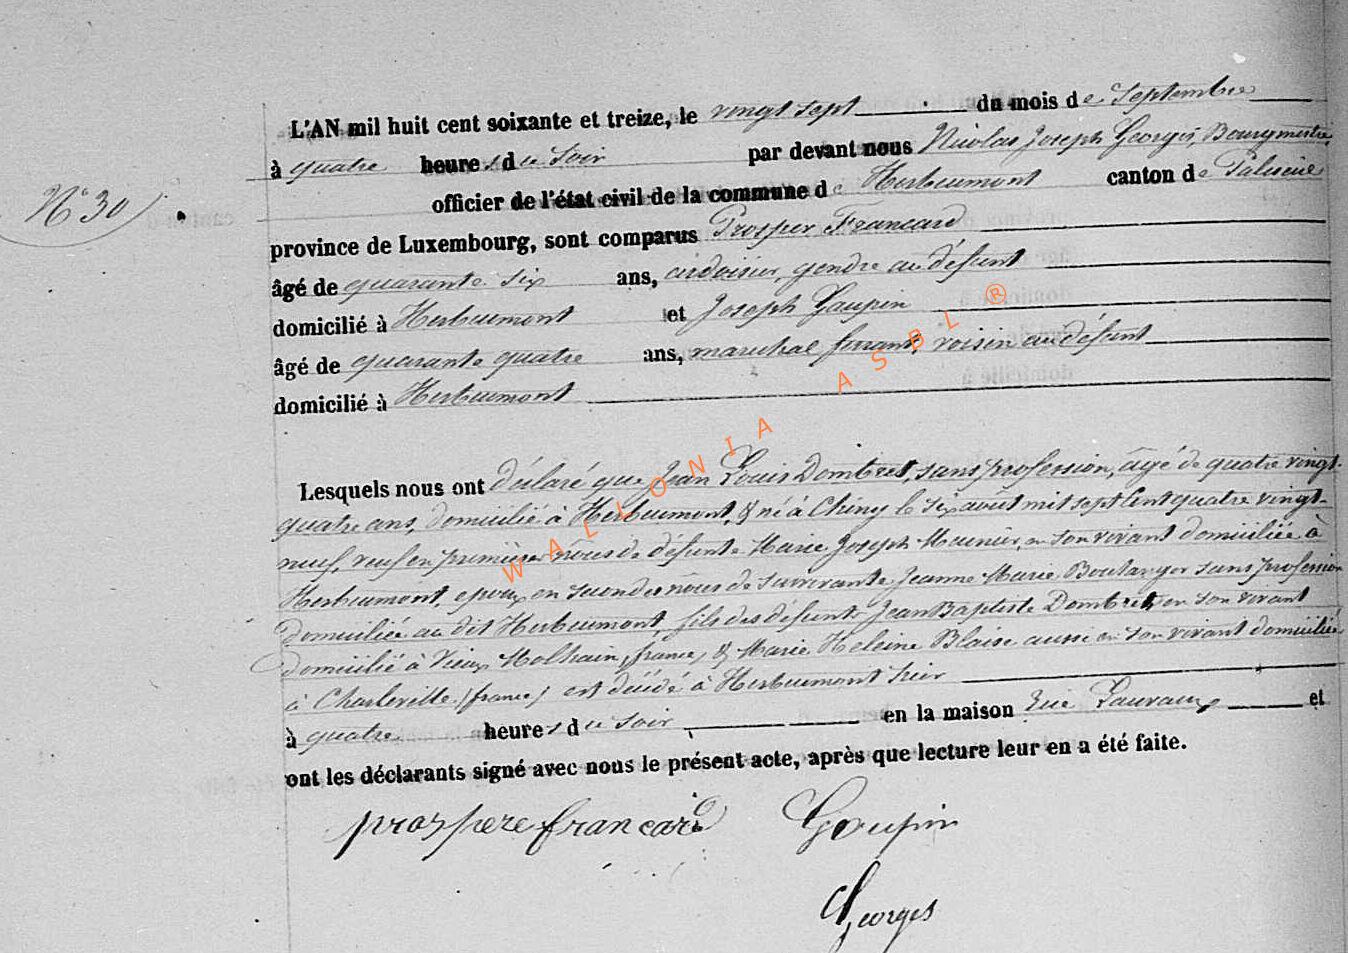 L'AN mil huit cent soixante et treize, le vingt sept du mois de Septembre
à quatre heures du soir par devant nous Nicolas Joseph Georges, Bourgmestre,
N° 30
officier de l'état civil de la commune de Herbeumont canton de Paliseul
province de Luxembourg, sont comparus Prosper Francard
âgé de quarante six ans, ardoisier, gendre au défunt
domicilié à Herbeumont et Joseph Goupin
âgé de quarante quatre ans, maréchal ferrant, voisin au défunt
domicilié à Herbeumont
WALLONIA ASBL ®
Lesquels nous ont déclaré que Jean Louis Dombret, sans profession, âgé de quatre vingt
quatre ans, domicilié à Herbeumont, & né à Chiny le six août mil sept cent quatre vingt
neuf, veuf en premières nôces de défunte Marie Joseph Meunier, en son vivant domiciliée à
Herbeumont, epoux en secondes nôces de survivante Jeanne Marie Boulanger sans profession
domiciliée au dit Herbeumont, fils des défunts Jean Baptiste Dombret, en son vivant
domicilié à Vieux Molhain, (france) & Marie Heleine Blaise aussi en son vivant domiciliée
à Charleville (france) est décédé à Herbeumont hier
à quatre heures du soir en la maison rue et
ont les déclarants signé avec nous le présent acte, après que lecture leur en a été faite.
prospere francard Goupin
Georges